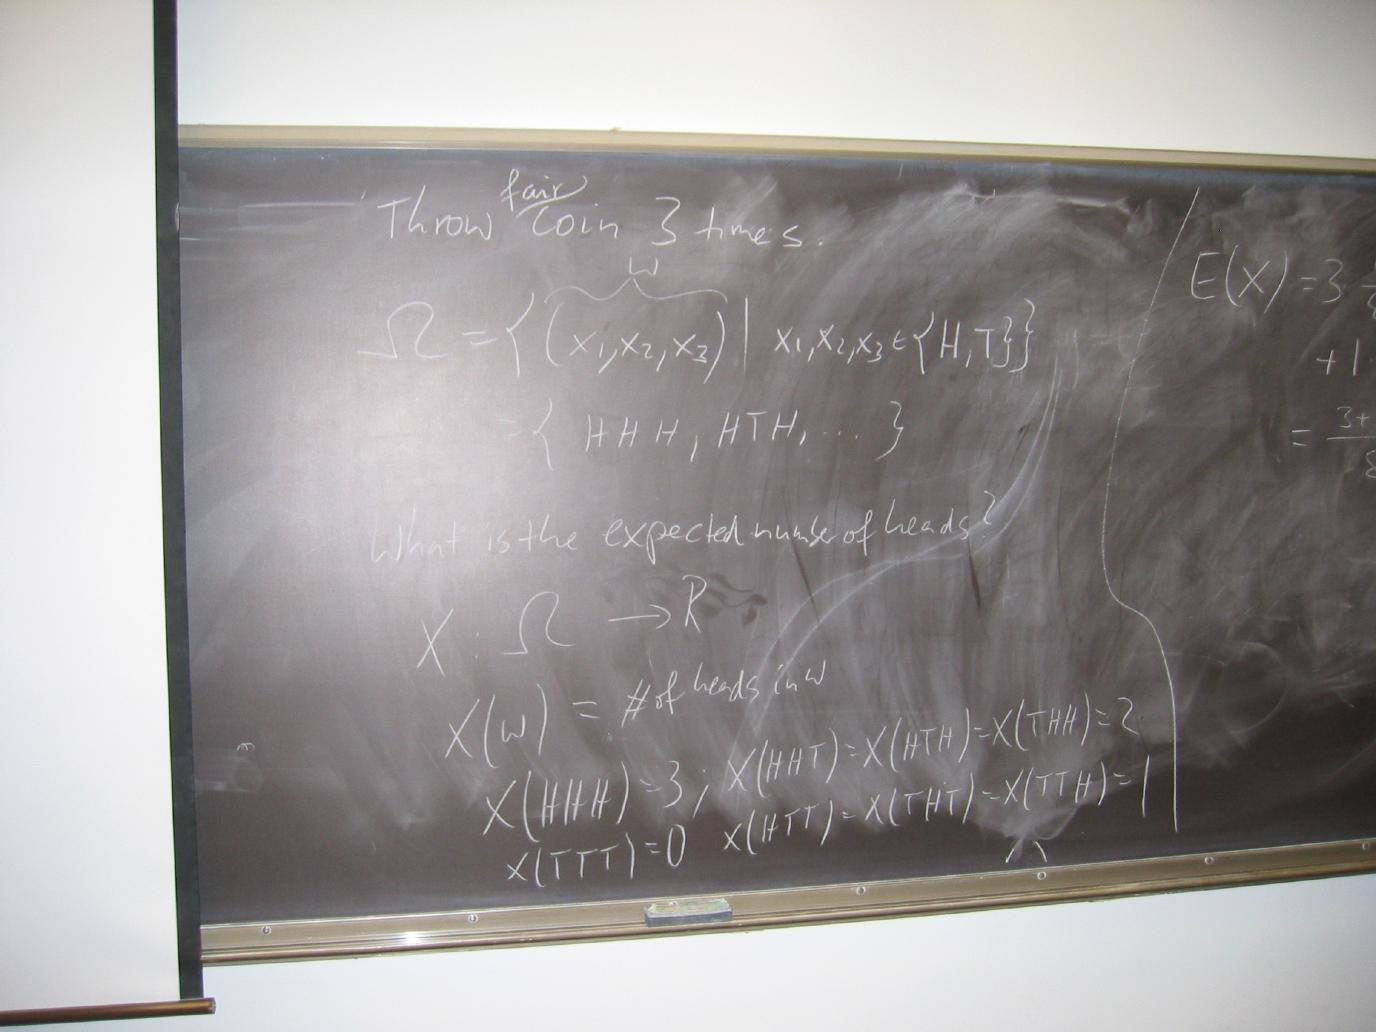 Throw fair coin 3 times.
w
Ω = { (x₁,x₂,x₃) | x₁,x₂,x₃ ∈ {H,T}}
= { HHH, HTH, ... }
What is the expected number of heads?
X : Ω → R
X(w) = # of heads in w
X(HHH)=3, X(HHT)=X(HTH)=X(THH)=2
X(TTT)=0 X(HTT)=X(THT)=X(TTH)=1
E(X)=3
+1
= 3+